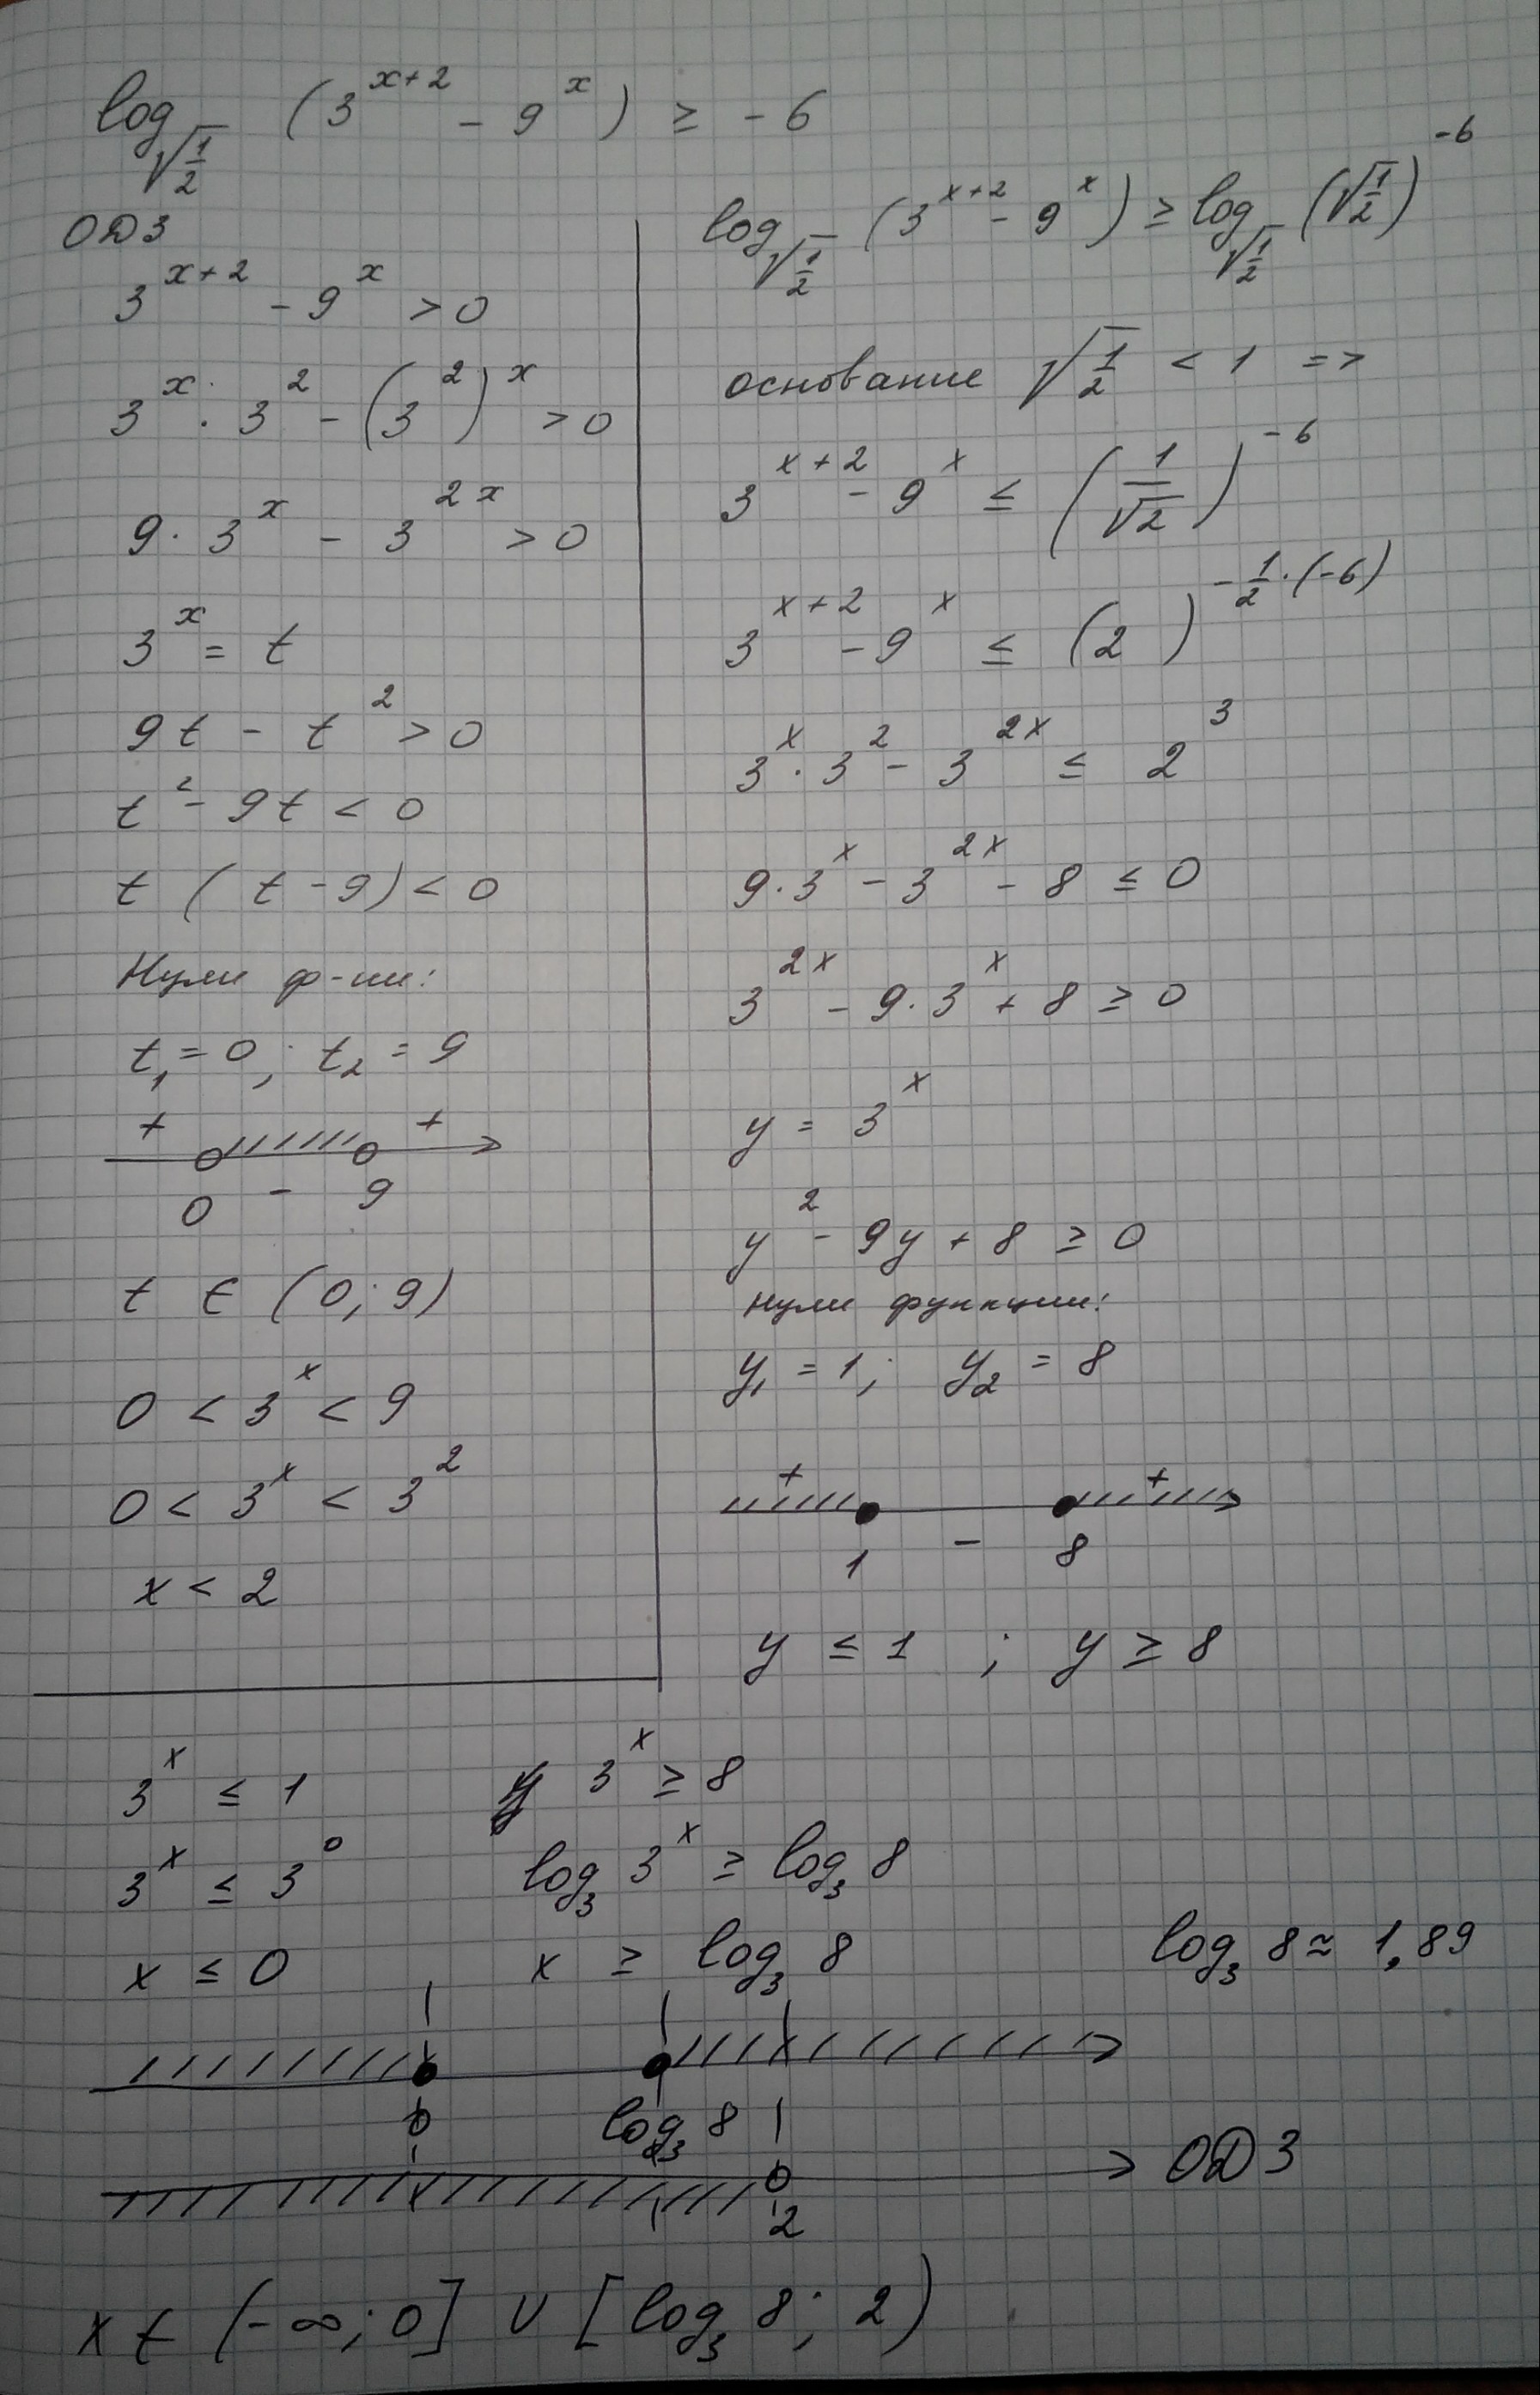 log_{√(1/2)} (3^{x+2} - 9^x) ≥ -6
ОДЗ
3^{x+2} - 9^x > 0
3^x · 3^2 - (3^2)^x > 0
9 · 3^x - 3^{2x} > 0
3^x = t
9t - t^2 > 0
t^2 - 9t < 0
t (t - 9) < 0
Нули ф-ии:
t_1 = 0; t_2 = 9
+ +
0 - 9
t ∈ (0; 9)
0 < 3^x < 9
0 < 3^x < 3^2
x < 2
log_{√(1/2)} (3^{x+2} - 9^x) ≥ log_{√(1/2)} (√(1/2))^{-6}
основание √(1/2) < 1 =>
3^{x+2} - 9^x ≤ (1/√2)^{-6}
3^{x+2} - 9^x ≤ (2)^{-1/2·(-6)}
3^x · 3^2 - 3^{2x} ≤ 2^3
9·3^x - 3^{2x} - 8 ≤ 0
3^{2x} - 9·3^x + 8 ≥ 0
y = 3^x
y^2 - 9y + 8 ≥ 0
нули функции:
y_1 = 1; y_2 = 8
+ +
1 - 8
y ≤ 1 ; y ≥ 8
3^x ≤ 1 3^x ≥ 8
3^x ≤ 3^0 log_3 3^x ≥ log_3 8
x ≤ 0 x ≥ log_3 8 log_3 8 ≈ 1,89
0 log_3 8
2 ОДЗ
x ∈ (-∞; 0] ∪ [log_3 8; 2)